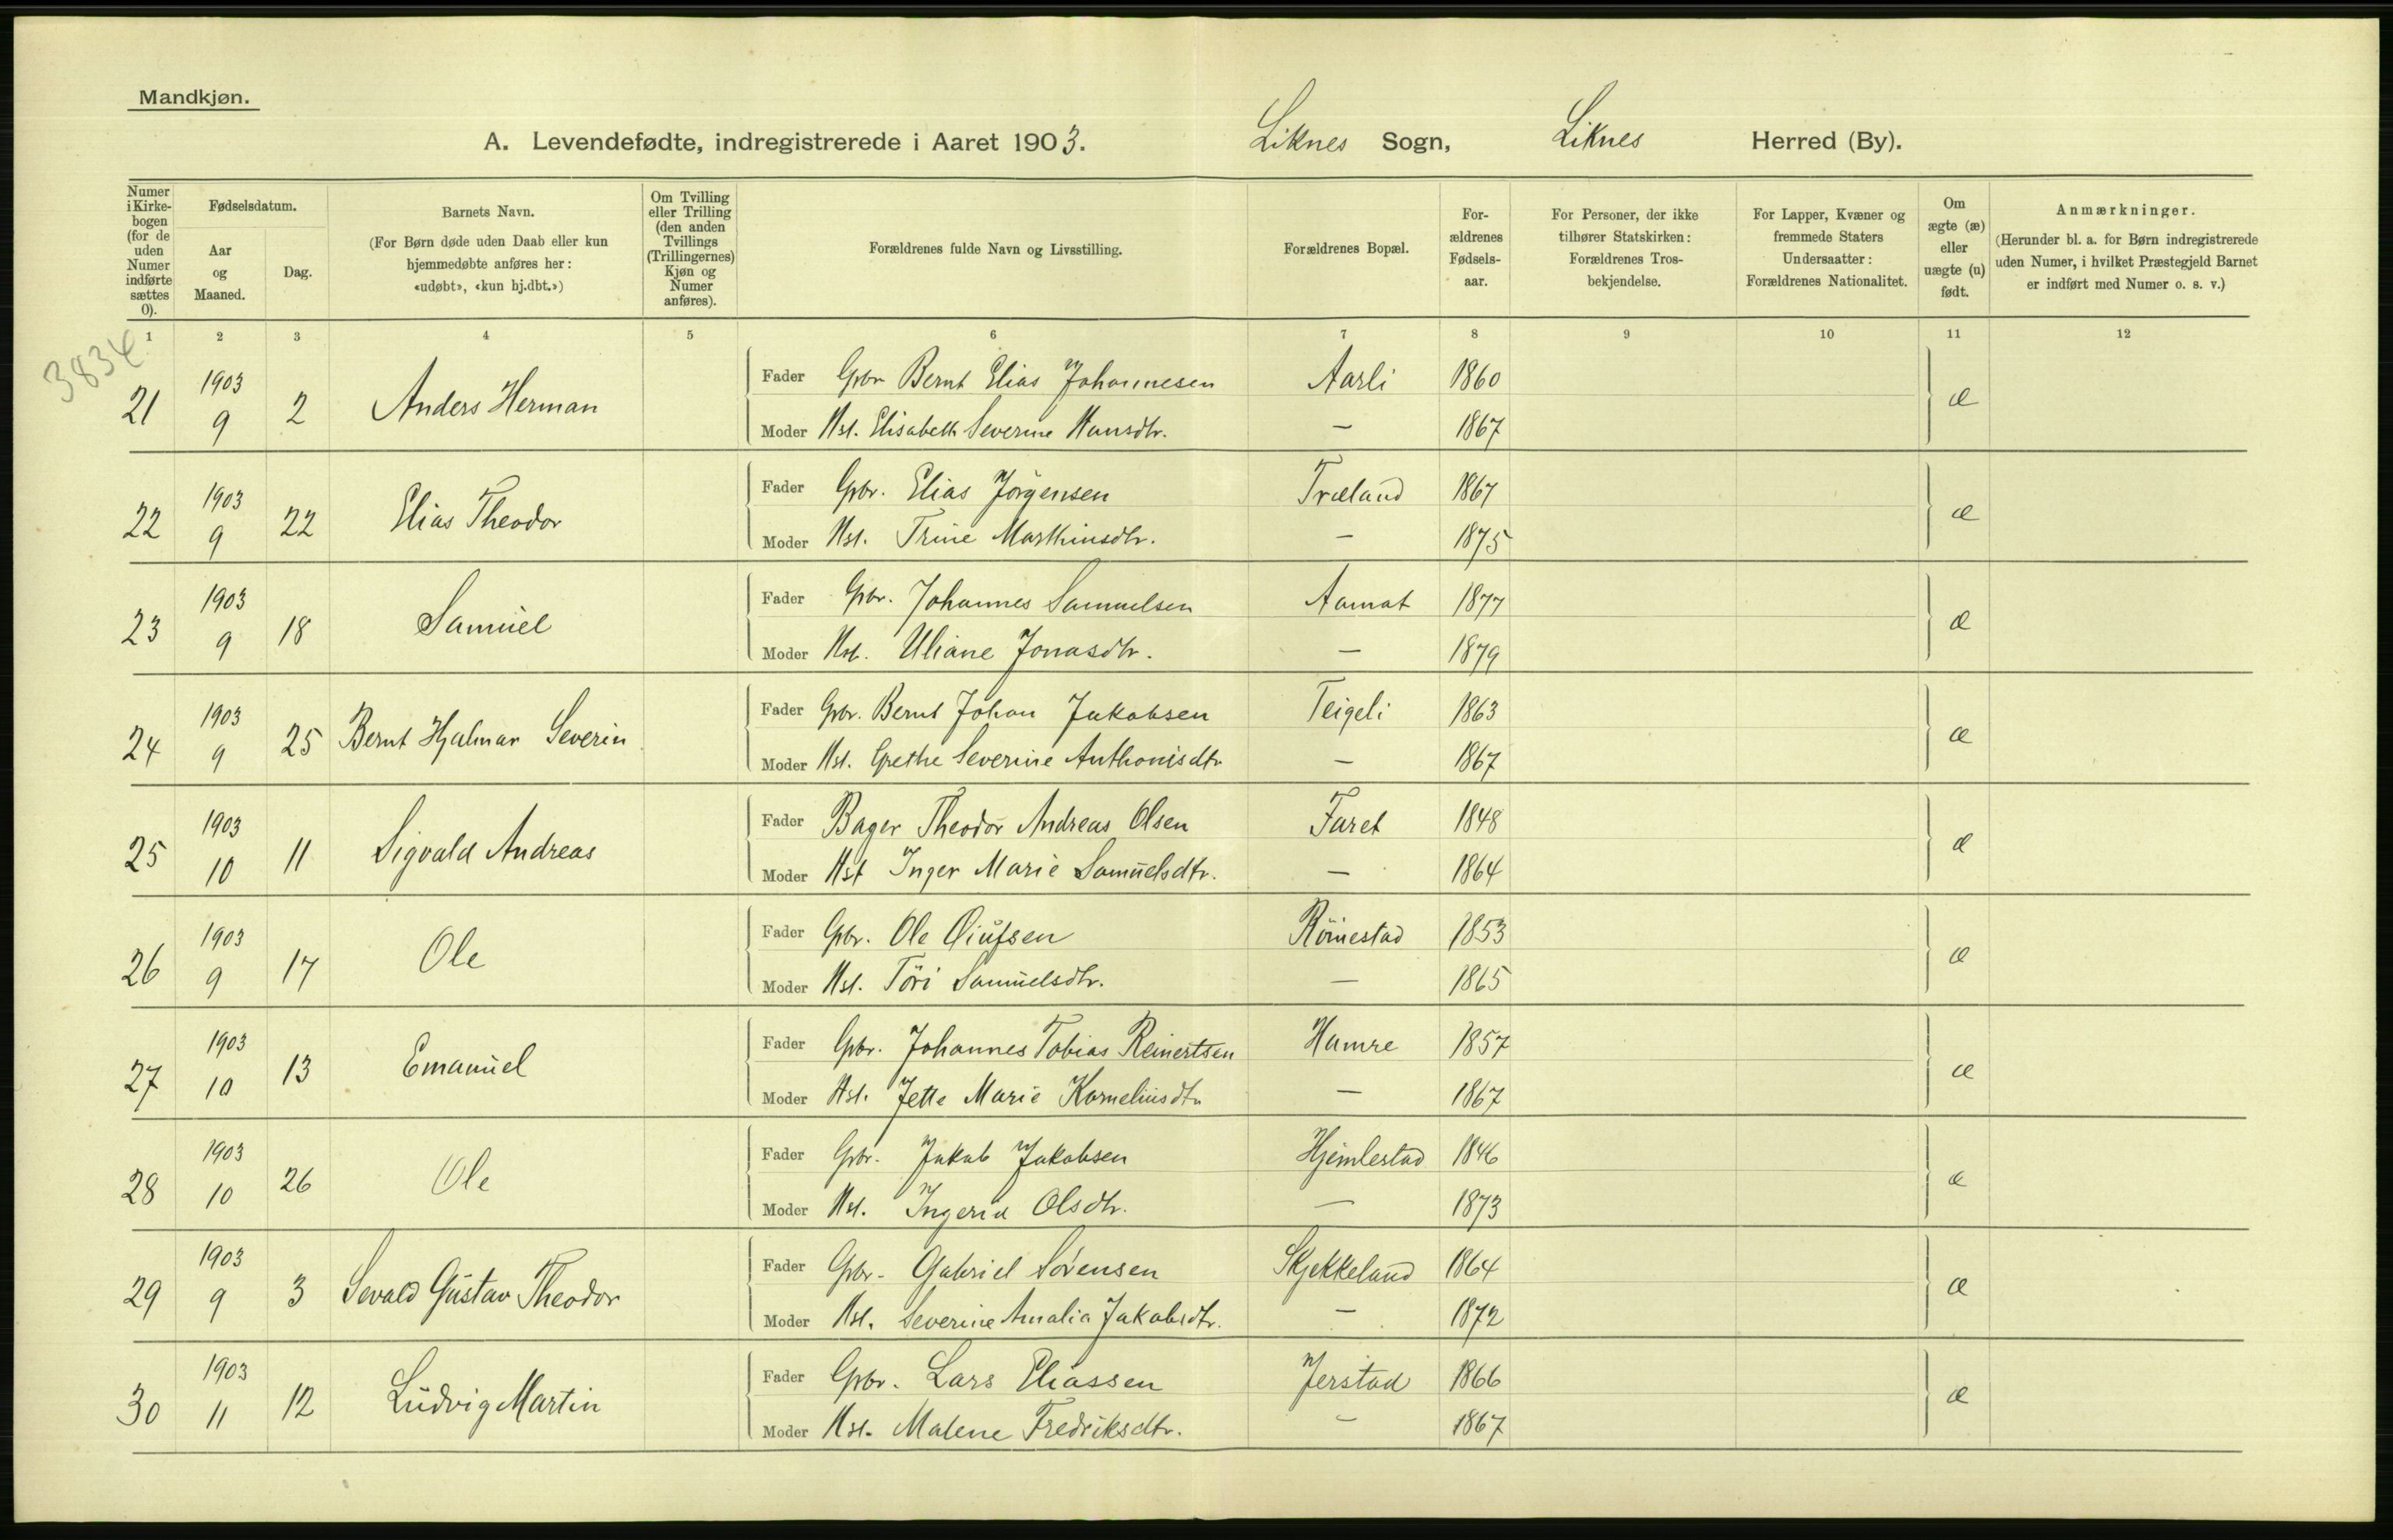 Mandkjøn.
A. Levendefødte, indregistrerede i Aaret 1903. Liknes Sogn, Liknes Herred (By).
Numer i Kirke-bogen (for de uden Numer indførte sættes 0).
Fødselsdatum.
Aar og Maaned.
Dag.
Barnets Navn.
(For Børn døde uden Daab eller kun hjemmedøbte anføres her: «udøbt», «kun hj.dbt.»)
Om Tvilling eller Trilling (den anden Tvillings (Trillingernes) Kjøn og Numer anføres).
Forældrenes fulde Navn og Livsstilling.
Forældrenes Bopæl.
For-ældrenes Fødsels-aar.
For Personer, der ikke tilhører Statskirken: Forældrenes Tros-bekjendelse.
For Lapper, Kvæner og fremmede Staters Undersaatter: Forældrenes Nationalitet.
Om ægte (æ) eller uægte (u) født.
Anmærkninger.
(Herunder bl. a. for Børn indregistrerede uden Numer, i hvilket Præstegjeld Barnet er indført med Numer o. s. v.)
1 2 3 4 5 6 7 8 9 10 11 12
3834
21 1903 9 2 Anders Herman Fader Gbr Bernt Elias Johannesen Aarli 1860 æ
Moder Hst. Elisabeth Severine Hansdtr. — 1867
22 1903 9 22 Elias Theodor Fader Gbr. Elias Jörgensen Træland 1867 æ
Moder Hst. Trine Marthinsdtr. — 1875
23 1903 9 18 Samuel Fader Gbr. Johannes Samuelsen Aamot 1877 æ
Moder Hst. Uliane Jonasdtr. — 1879
24 1903 9 25 Bernt Hjalmar Severin Fader Gbr. Bernt Johan Jakobsen Teigeli 1863 æ
Moder Hst. Grethe Severine Anthonisdtr — 1867
25 1903 10 11 Sigvald Andreas Fader Bager Theodor Andreas Olsen Faret 1848 æ
Moder Hst Inger Marie Samuelsdtr. — 1864
26 1903 9 17 Ole Fader Gbr. Ole Öiufsen Römestad 1853 æ
Moder Hst. Töri Samuelsdtr. — 1865
27 1903 10 13 Emanuel Fader Gbr. Johannes Tobias Reinertsen Hamre 1857 æ
Moder Hst. Jette Marie Korneliusdtr — 1867
28 1903 10 26 Ole Fader Gbr. Jakob Jakobsen Hjemlestad 1846 æ
Moder Hst. Ingerid Olsdtr. — 1873
29 1903 9 3 Sevald Gustav Theodor Fader Gbr. Gabriel Sörensen Skjekkeland 1864 æ
Moder Hst. Severine Amalia Jakobsdtr. — 1872
30 1903 11 12 Ludvig Martin Fader Gbr. Lars Eliassen Jerstad 1866 æ
Moder Hst. Malene Fredriksdtr. — 1867